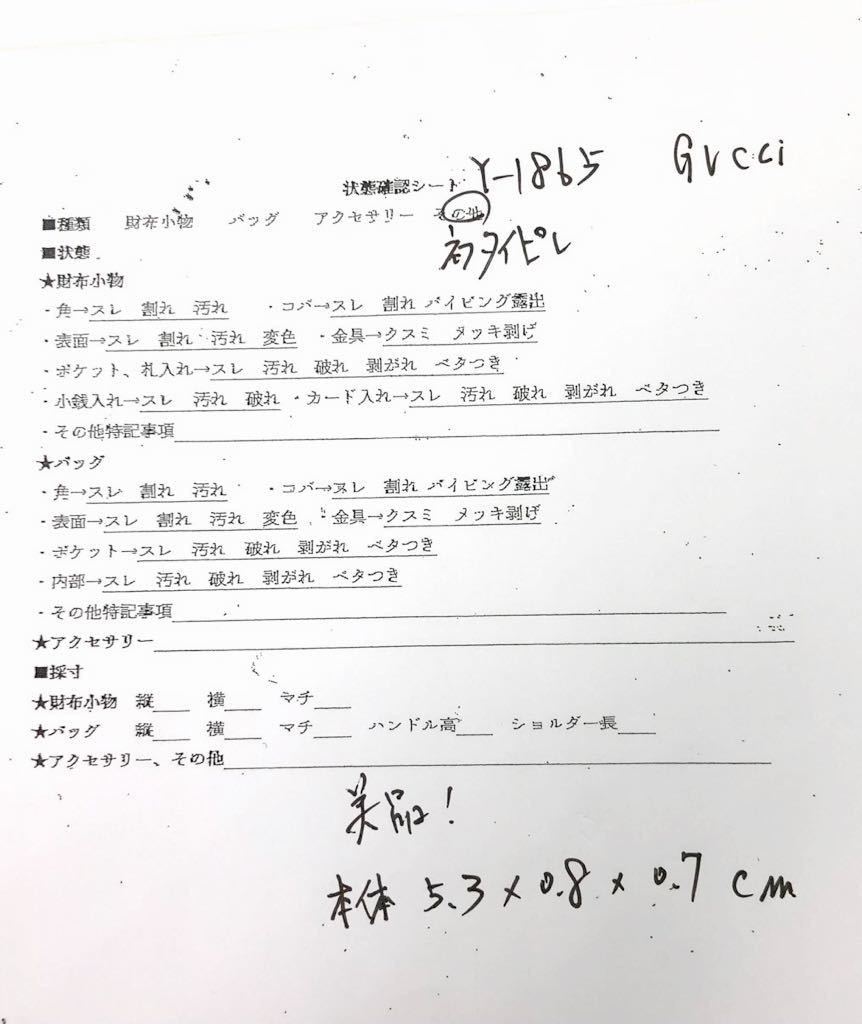 状態確認シート Y-1865 Gucci
■種類 財布小物 バッグ アクセサリー その他
ネクタイピン
■状態
★財布小物
・角→スレ 割れ 汚れ ・コバ→スレ 割れ パイピング露出
・表面→スレ 割れ 汚れ 変色 ・金具→クスミ メッキ剥げ
・ポケット、札入れ→スレ 汚れ 破れ 剥がれ ベタつき
・小銭入れ→スレ 汚れ 破れ ・カード入れ→スレ 汚れ 破れ 剥がれ ベタつき
・その他特記事項
★バッグ
・角→スレ 割れ 汚れ ・コバ→スレ 割れ パイピング露出
・表面→スレ 割れ 汚れ 変色 ・金具→クスミ メッキ剥げ
・ポケット→スレ 汚れ 破れ 剥がれ ベタつき
・内部→スレ 汚れ 破れ 剥がれ ベタつき
・その他特記事項
★アクセサリー
■採寸
★財布小物 縦 横 マチ
★バッグ 縦 横 マチ ハンドル高 ショルダー長
★アクセサリー、その他
美品!
本体 5.3 x 0.8 x 0.7 cm